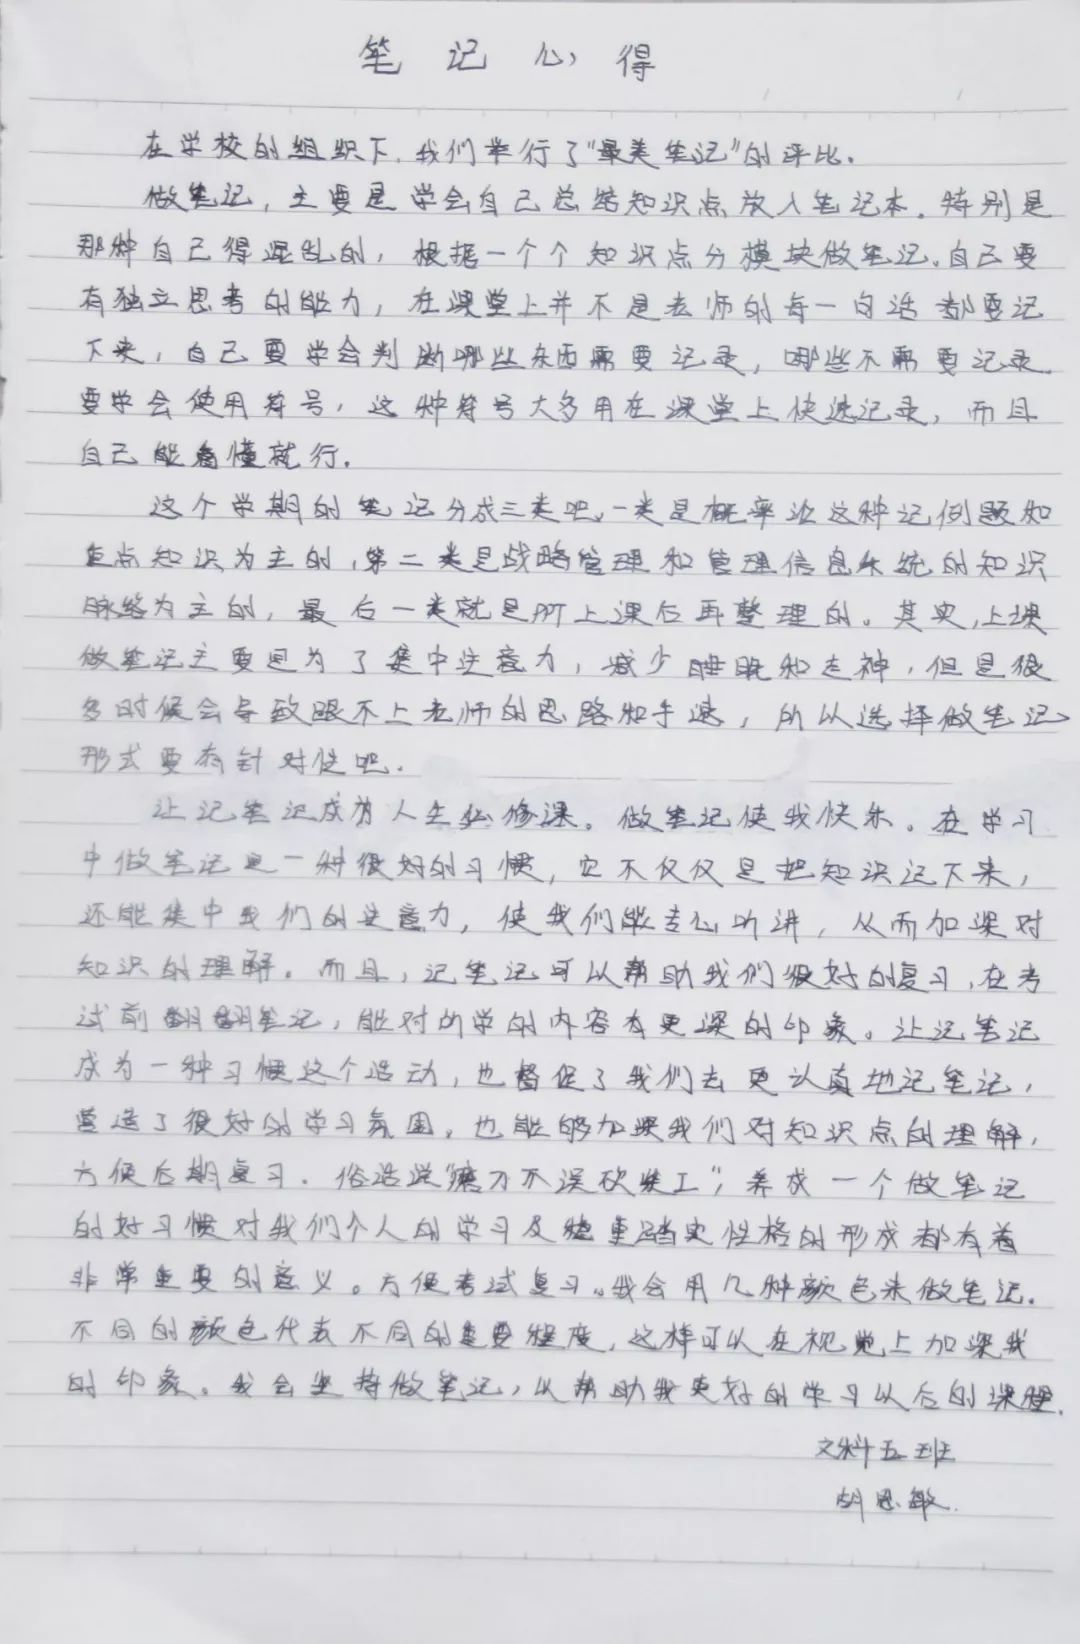 笔记心得
在学校的组织下,我们举行了"最美笔记"的评比.
做笔记,主要是学会自己总结知识点放入笔记本.特别是
那种自己得混乱的,根据一个个知识点分模块做笔记.自己要
有独立思考的能力,在课堂上并不是老师的每一句话都要记
下来,自己要学会判断哪些东西需要记录,哪些不需要记录.
要学会使用符号,这种符号大多用在课堂上快速记录,而且
自己能看懂就行.
这个学期的笔记分成三类吧,一类是概率论这种记例题和
重点知识为主的,第二类是战略管理和管理信息系统的知识
脉络为主的,最后一类就是PPT上课后再整理的。其实,上课
做笔记主要是为了集中注意力,减少睡眠和走神,但是很
多时候会导致跟不上老师的思路和手速,所以选择做笔记
形式要有针对性吧.
让记笔记成为人生必修课。做笔记使我快乐。在学习
中做笔记是一种很好的习惯,它不仅仅是把知识记下来,
还能集中我们的注意力,使我们能专心听讲,从而加深对
知识的理解。而且,记笔记可以帮助我们很好的复习,在考
试前翻翻笔记,能对所学的内容有更深的印象。让记笔记
成为一种习惯这个活动,也督促了我们去更认真地记笔记,
营造了很好的学习氛围,也能够加深我们对知识点的理解,
方便后期复习.俗话说"磨刀不误砍柴工",养成一个做笔记
的好习惯对我们个人的学习及稳重踏实性格的形成都有着
非常重要的意义。方便考试复习。我会用几种颜色来做笔记.
不同的颜色代表不同的重要程度,这样可以在视觉上加深我
的印象。我会坚持做笔记,以帮助我更好的学习以后的课程.
文科五班
胡思敏.